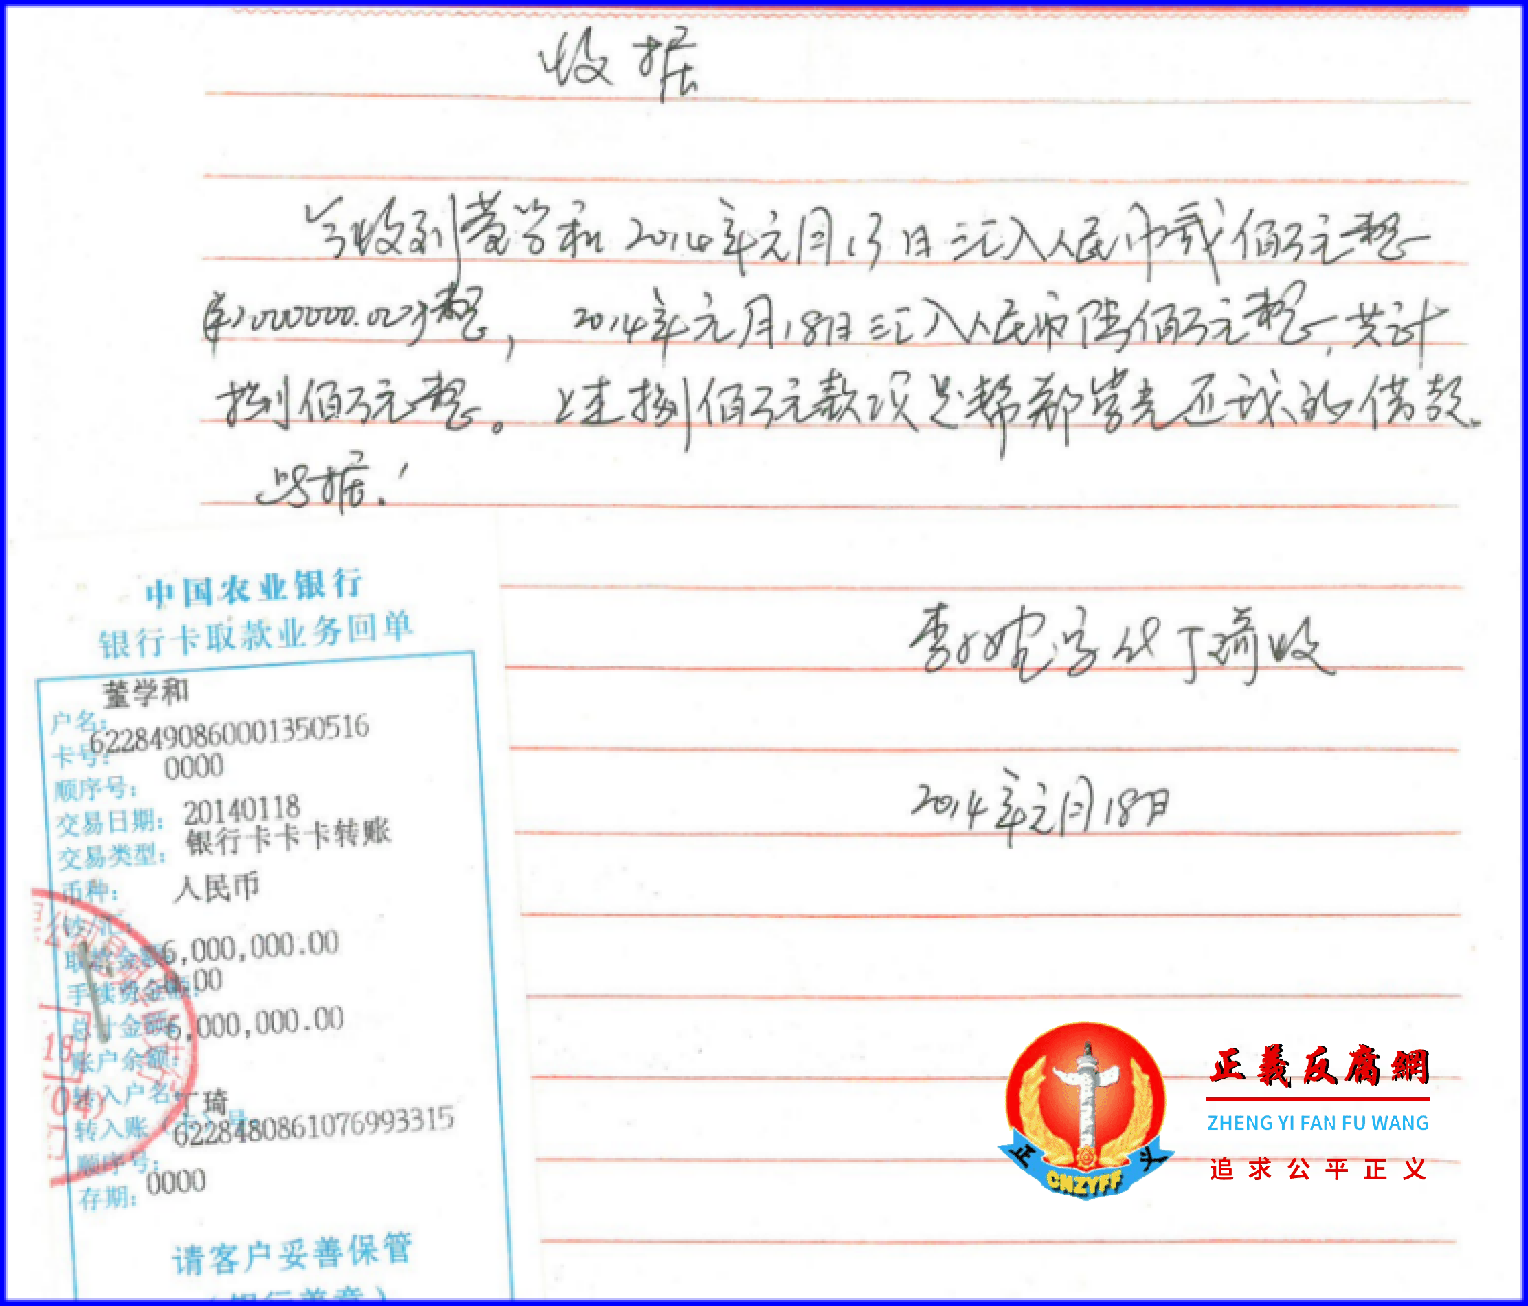 收据
今收到董学和2014年元月13日汇入人民币贰佰万元整
¥2000000.00元整，2014年元月18日汇入人民币陆佰万元整，共计
捌佰万元整。上述捌佰万元款项是帮郝崇光还我的借款。
此据！
中国农业银行
银行卡取款业务回单
户名：董学和
卡号：6228490860001350516
顺序号：0000
交易日期：20140118
交易类型：银行卡卡卡转账
币种：人民币
取款金额：6,000,000.00
手续费金额：0.00
总计金额：6,000,000.00
账户余额：
转入户名：丁琦
转入账（卡）号：6228480861076993315
顺序号：
存期：0000
请客户妥善保管
代丁琦收
2014年元月18日
正義反腐網
ZHENG YI FAN FU WANG
追求公平正义
正义
CNZYFF